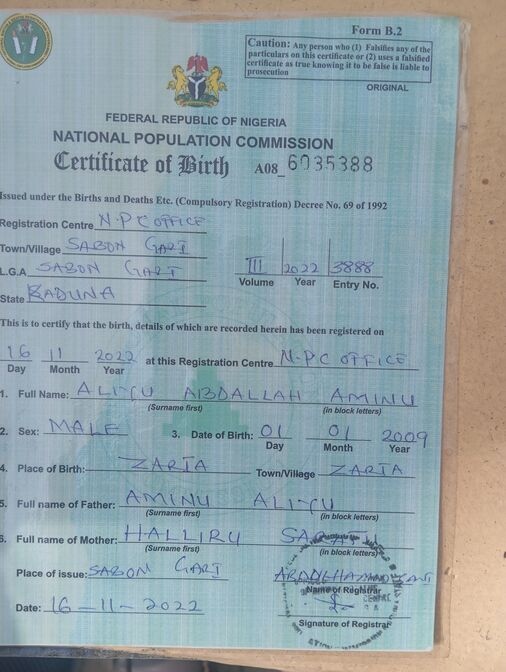 Form B.2
Caution: Any person who (1) Falsifies any of the
particulars on this certificate or (2) uses a falsified
certificate as true knowing it to be false is liable to
prosecution
ORIGINAL
FEDERAL REPUBLIC OF NIGERIA
NATIONAL POPULATION COMMISSION
Certificate of Birth A08_ 6035388
Issued under the Births and Deaths Etc. (Compulsory Registration) Decree No. 69 of 1992
Registration Centre N.P.C OFFICE
Town/Village SABON GARI
L.G.A SABON GARI III 2022 3888
Volume Year Entry No.
State KADUNA
This is to certify that the birth, details of which are recorded herein has been registered on
16 11 2022 at this Registration Centre N.P.C OFFICE
Day Month Year
1. Full Name: ALIYU ABDALLAH AMINU
(Surname first) (in block letters)
2. Sex: MALE 3. Date of Birth: 01 01 2009
Day Month Year
4. Place of Birth: ZARIA Town/Village ZARIA
5. Full name of Father: AMINU ALIYU
(Surname first) (in block letters)
6. Full name of Mother: HALLIRU
(Surname first) (in block letters)
Place of issue: SABON GARI
Name of Registrar
Date: 16-11-2022
Signature of Registrar